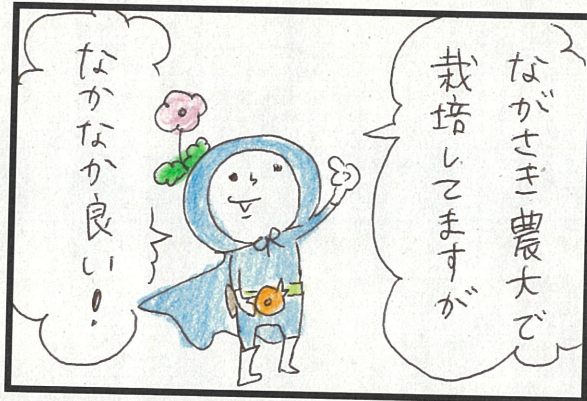 ながさき農大で
栽培してますが
なかなか良い!